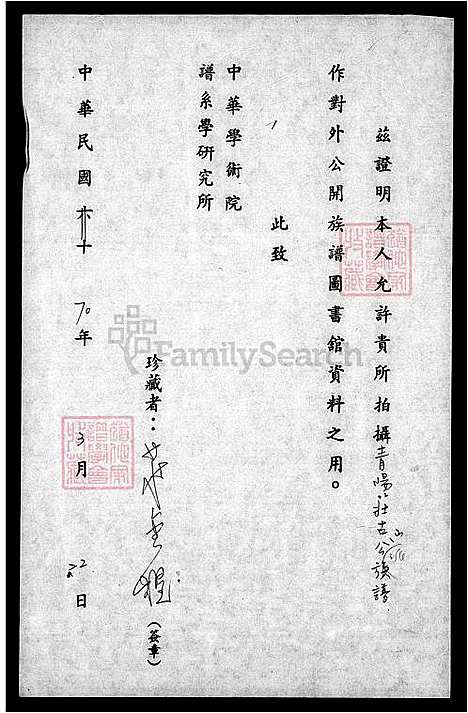 茲證明本人允許貴所拍攝青陽莊古山公派族譜
作對外公開族譜圖書館資料之用。
此致
中華學術院
譜系學研究所
珍藏者：莊
(簽章)
中華民國 70年 3月 22日
FamilySearch